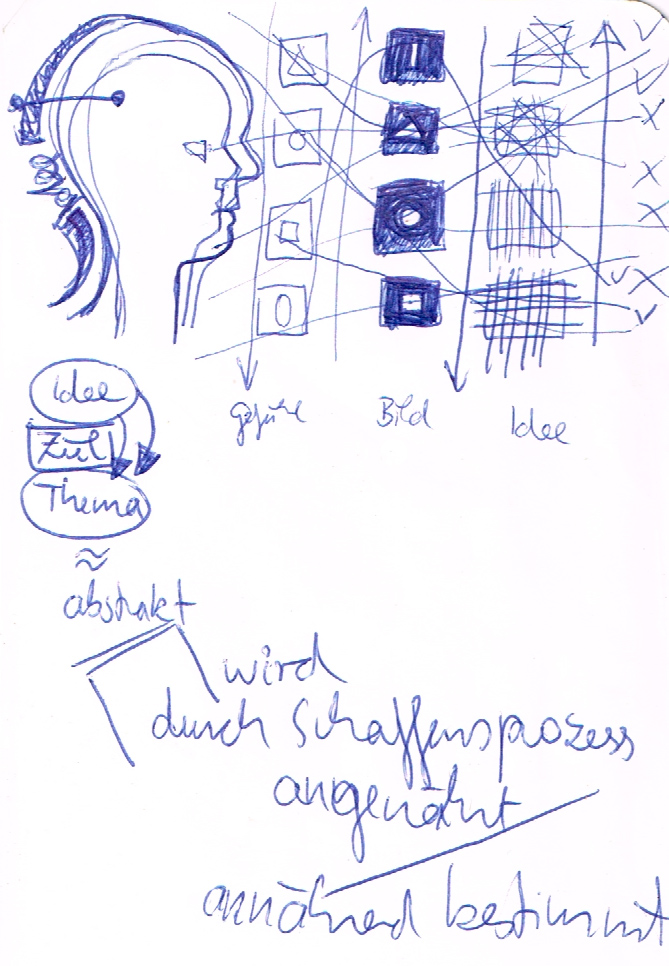 Gefühl Bild Idee
Idee
Ziel
Thema
≈
abstrakt
wird
durch Schaffensprozess
angenährt
annährend bestimmt